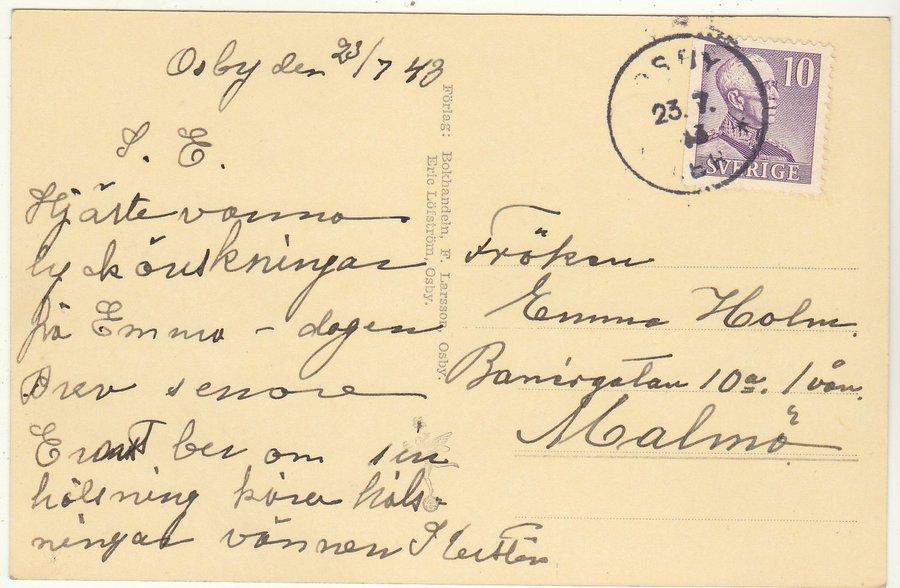 Osby den 23/7 43
S. E.
Hjärte varma
lyckönskningar
på Emma-dagen
Brev senare
Ernst ber om sin
hälsning kära häls-
ningar vännen
Förlag: Bokhandeln, F. Larsson, Osby.
Eric Löfström, Osby.
OSBY
23. 7.
43
10
SVERIGE
Fröken
Emma Holm.
10a. 1 vån.
Malmö